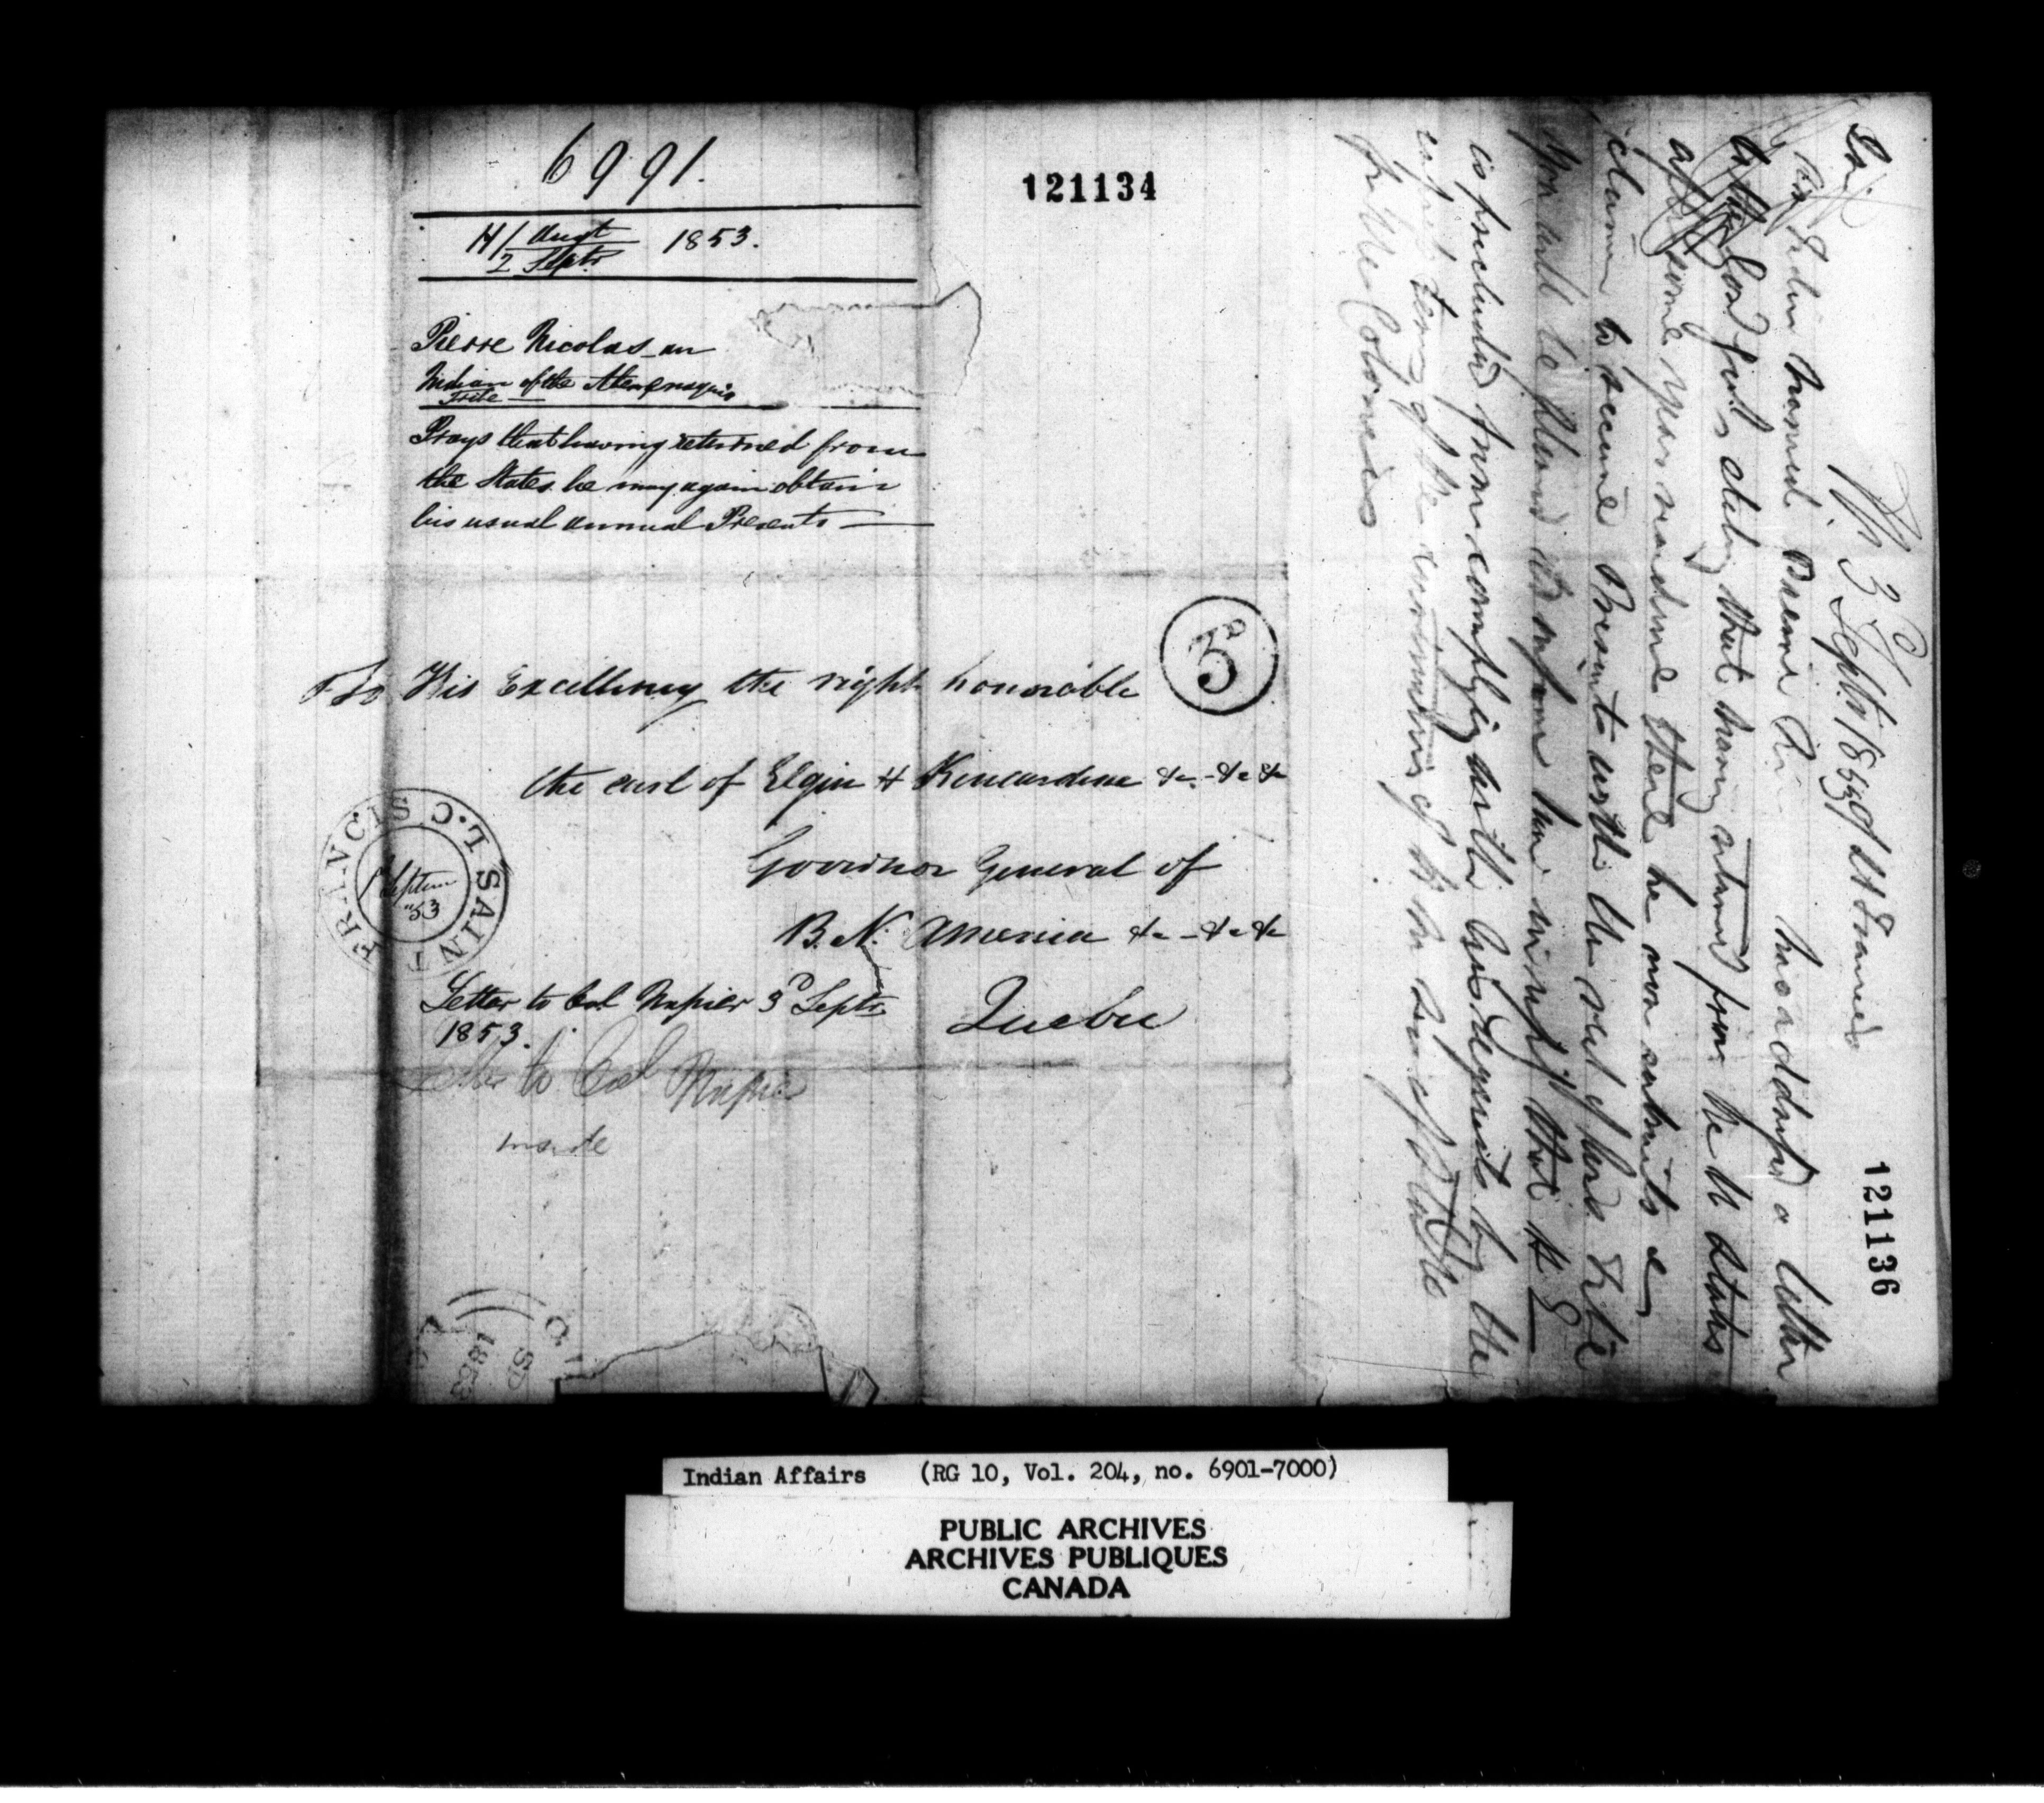 6991.
121134
H/ 1 Augt 1853.
2 Septr
Pierre Nicolas an
Indian of the Abenaquis
Tribe
Prays that having returned from
the States he may again obtain
his usual annual Presents
5
To His Excellency the right honorable
the earl of Elgin & Kincardine &c. &c &c
Governor General of
B. N. America &c - &c &c
Quebec
SAINT FRANCIS C.
1 Septem
"53
Letter to Col Napier 3d Septr
1853.
to Col Napier
made
1853
121136
3d Septr 1853
St Francis
Sir
An Indian named has addressed a letter
to the Gov Genl stating that having returned from the U States
after some years residence there he now submits a
claim to receive Presents with the rest of his Tribe
You will be pleased to inform him in reply that H E
is precluded from complying with his request by the
of the
for the Colonies
Indian Affairs (RG 10, Vol. 204, no. 6901-7000)
PUBLIC ARCHIVES
ARCHIVES PUBLIQUES
CANADA